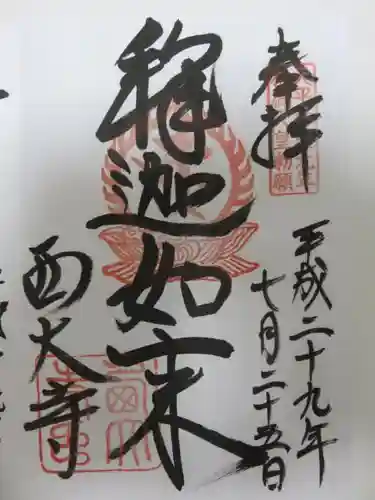 奉拝
平成二十九年
七月二十五日
釈迦如来
西大寺